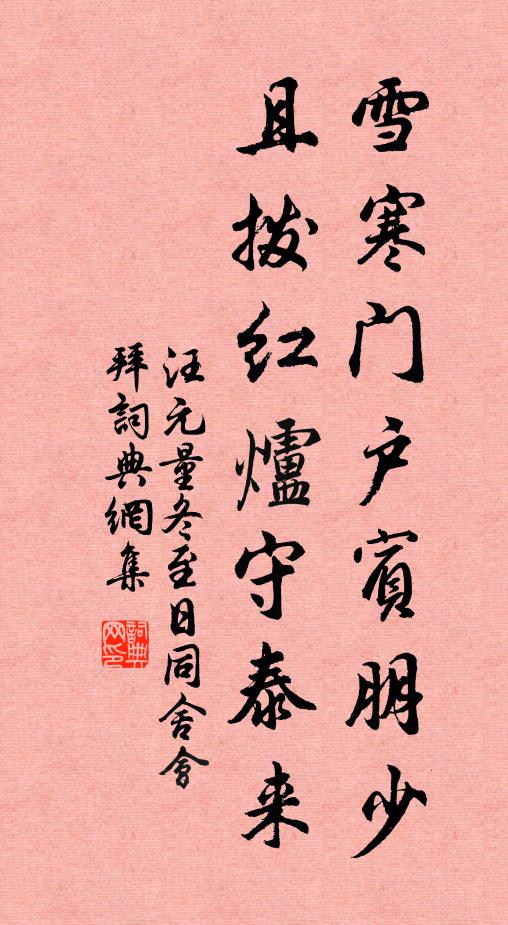 雪寒门户宾朋少
且拨红爐守泰来
汪元量冬至日同舍會
拜詞典網集
詞典
网印